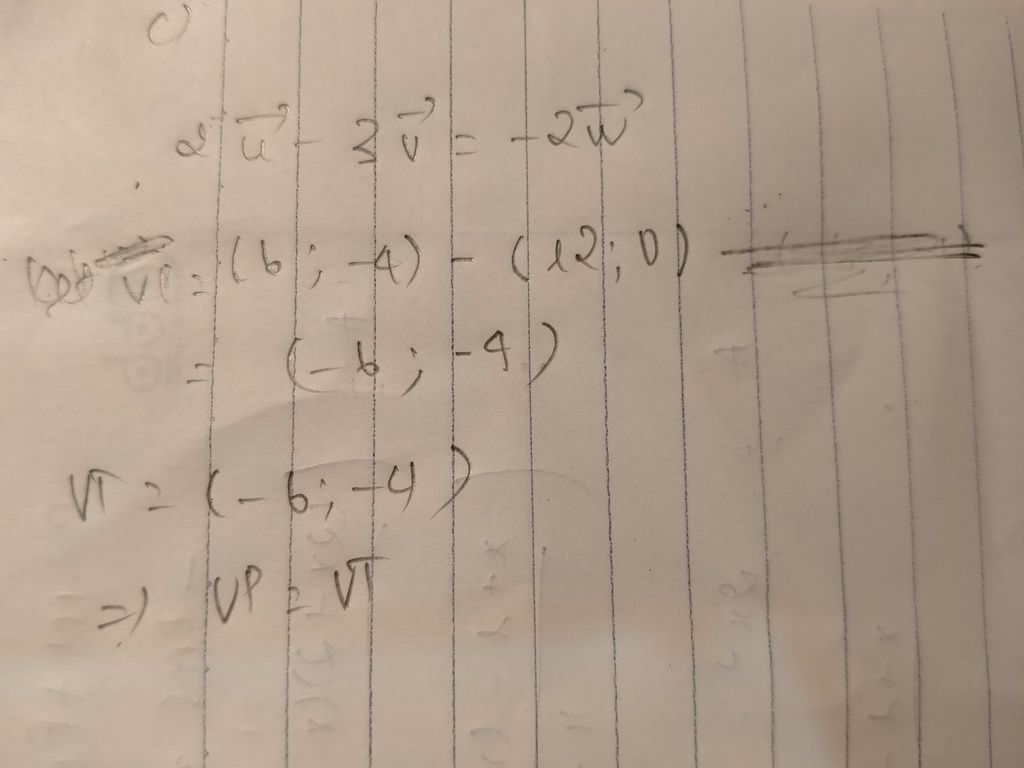 c)
2u⃗ - 3v⃗ = -2w⃗
VP = (6; -4) - (12; 0)
= (-6; -4)
VT = (-6; -4)
=) VP = VT